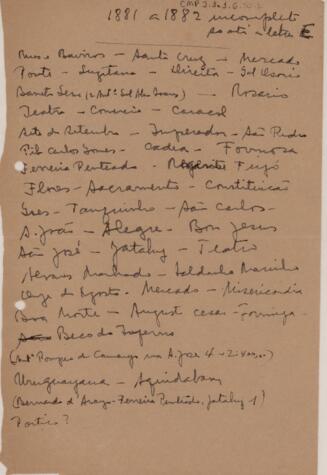 CMP 2.
1881 a 1882 incompleto
só até a letra E
Ruas e Bairros - Santa Cruz - Mercado
Ponte - Lusitana - Direita - Gal Osorio
Barreto Leme - Rosario
Theatro - Commercio - Caracol
Sete de Setembro - Imperador - São Pedro
Pde Carlos Gomes - Cadeia - Formosa
Ferreira Penteado - Regente Feijó
Flores - Sacramento - Constituição
Tanquinho - São Carlos -
S. João - Alegre - Bom Jesus
São José - Jatahy - Teatro
Alvares Machado - Saldanha Marinho
Onze de Agosto - Mercado - Misericordia
Boa Morte - August Cesar - Formiga -
Beco do Inferno
(Antº Pompeo de Camargo rua S. José 4
Uruguayana - Aquidaban
(Bernardo d'Arayo - Ferreira Penteado, Jatahy 1)
Portico?